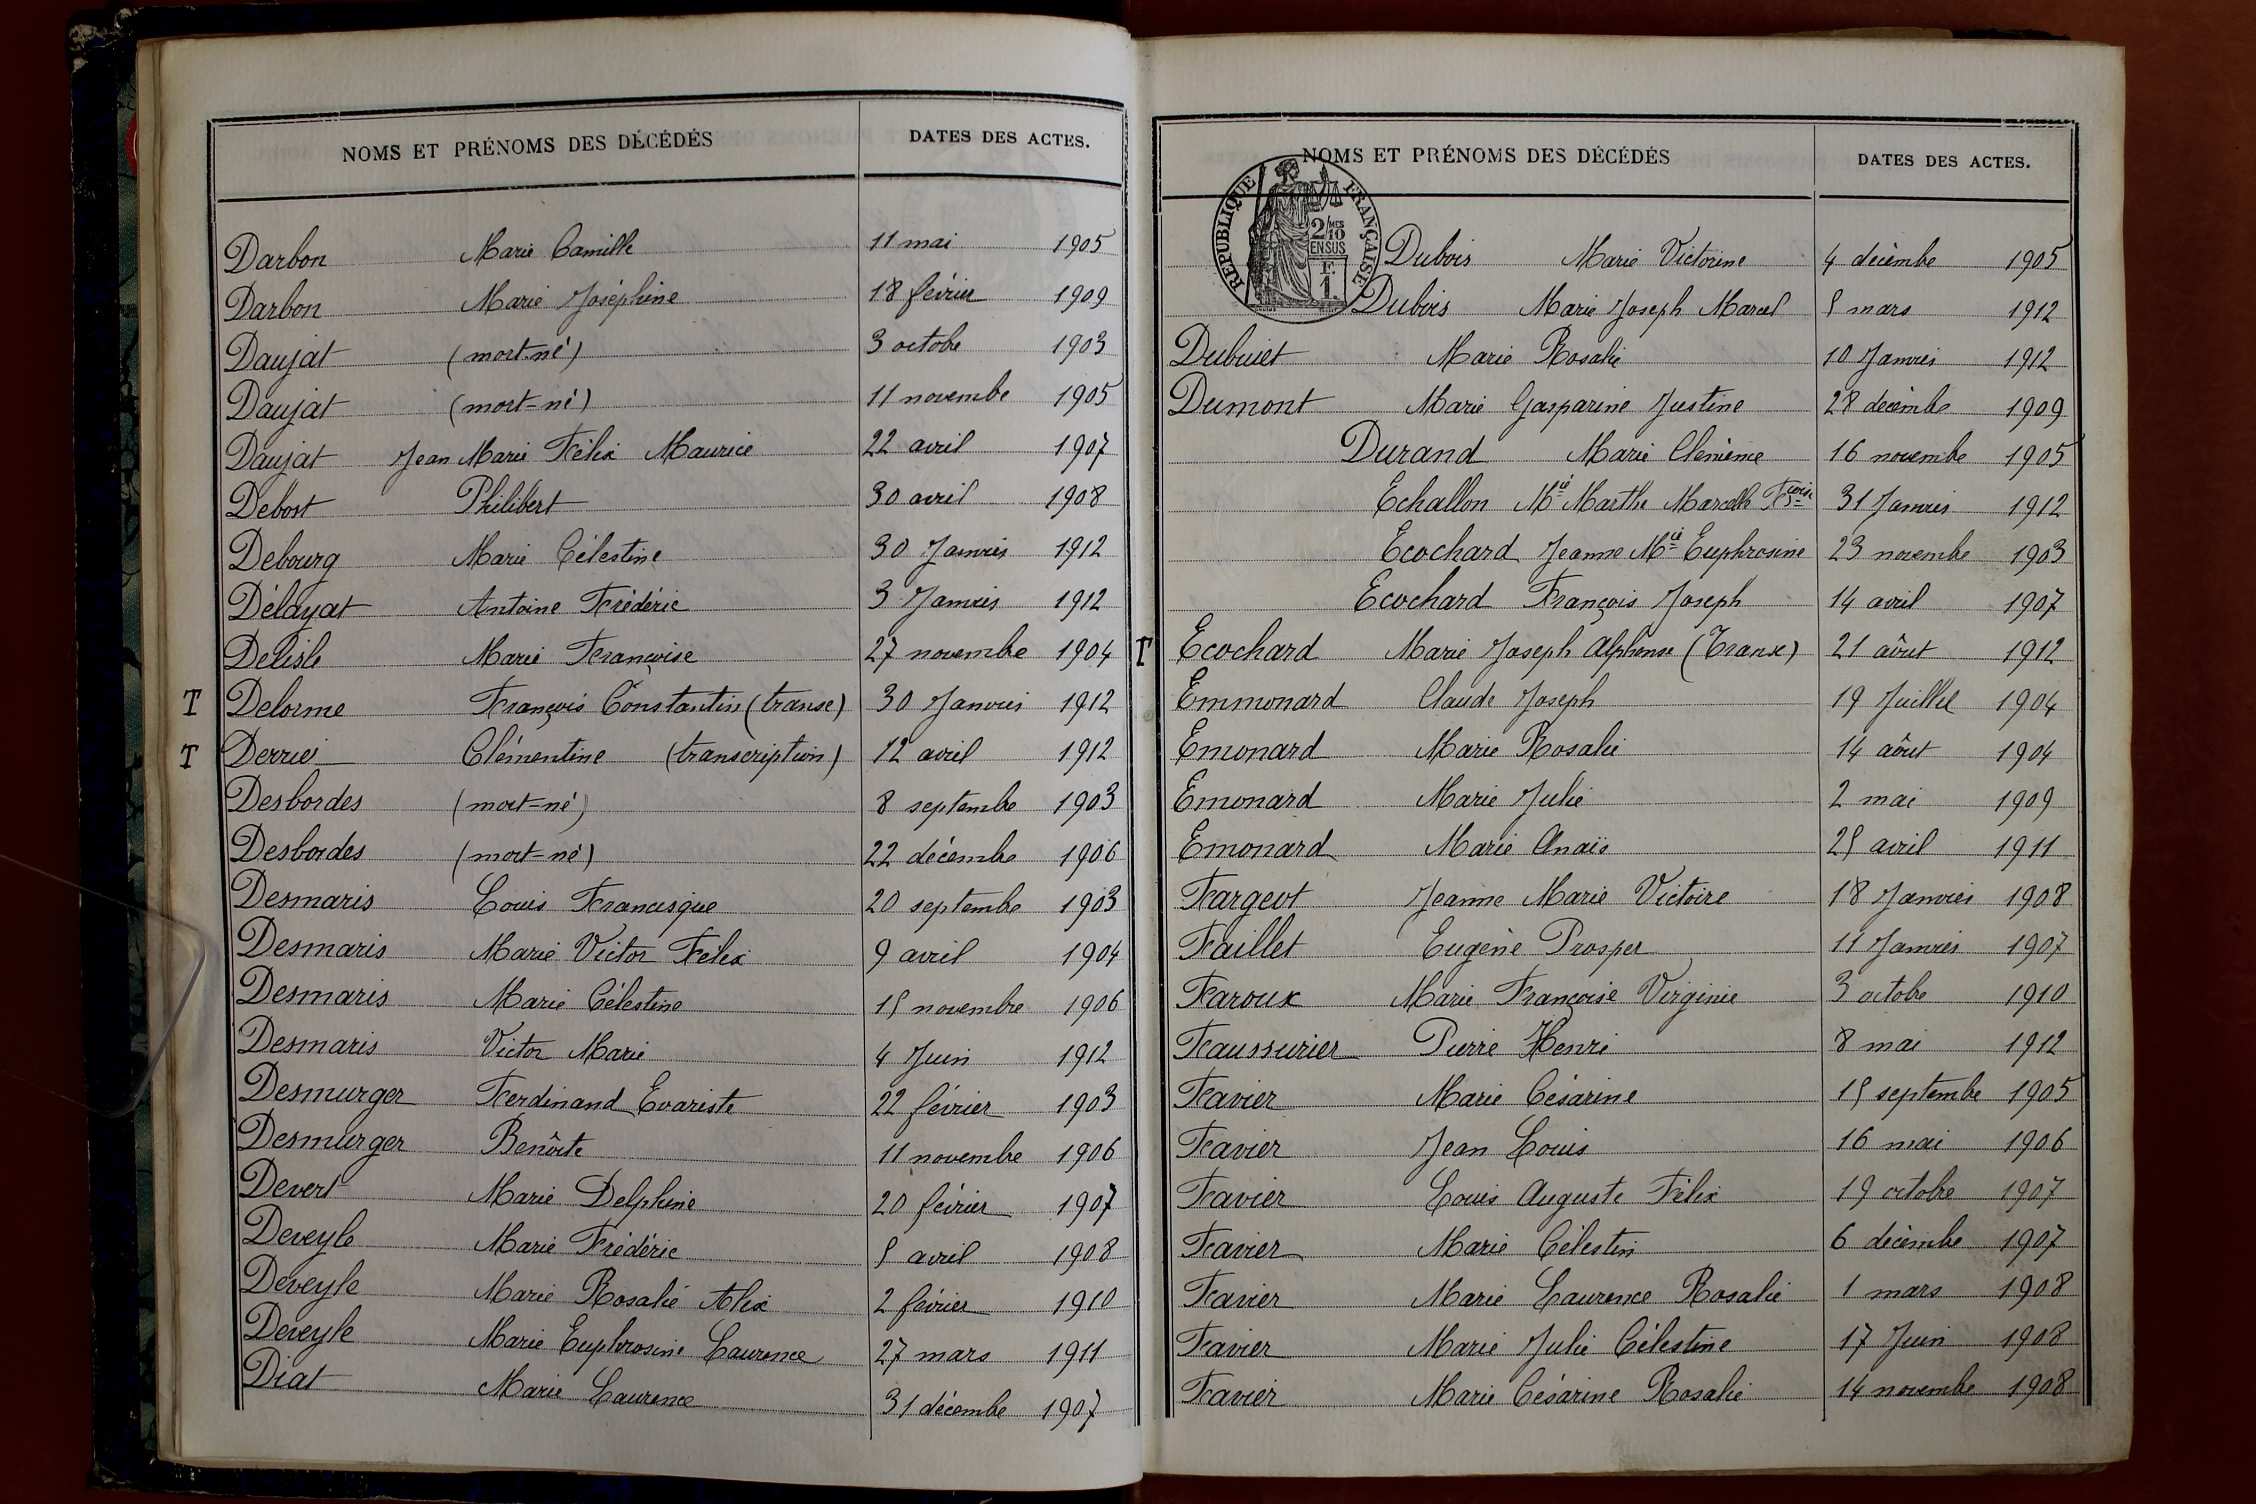 NOMS ET PRÉNOMS DES DÉCÉDÉS DATES DES ACTES.
Darbon Marie Camille 11 mai 1905
Darbon Marie Joséphine 18 février 1909
Daujat (mort-né) 3 octobre 1903
Daujat (mort-né) 11 novembre 1905
Daujat Jean Marie Félix Maurice 22 avril 1907
Debost Philibert 30 avril 1908
Debourg Marie Célestine 30 Janvier 1912
Délayat Antoine Frédéric 3 Janvier 1912
Delisle Marie Françoise 27 novembre 1904
T Delorme François Constantin (transc) 30 Janvier 1912
T Derrier Clémentine (transcription) 12 avril 1912
Desbordes (mort-né) 8 septembre 1903
Desbordes (mort-né) 22 décembre 1906
Desmaris Louis Francisque 20 septembre 1903
Desmaris Marie Victor Félix 9 avril 1904
Desmaris Marie Célestine 15 novembre 1906
Desmaris Victor Marie 4 Juin 1912
Desmurger Ferdinand Evariste 22 février 1903
Desmurger Benôite 11 novembre 1906
Devert Marie Delphine 20 février 1907
Deveyle Marie Frédéric 5 avril 1908
Deveyle Marie Rosalie Alix 2 février 1910
Deveyle Marie Euphrosine Laurence 27 mars 1911
Diat Marie Laurence 31 décembre 1907
NOMS ET PRÉNOMS DES DÉCÉDÉS DATES DES ACTES.
REPUBLIQUE FRANÇAISE
2/MES 10
EN SUS
F.
1.
Dubois Marie Victorine 4 décembre 1905
Dubois Marie Joseph Marcel 5 mars 1912
Marie Rosalie 10 Janvier 1912
Dumont Marie Gasparine Justine 28 décembre 1909
Durand Marie Clémence 16 novembre 1905
Echallon Mie Marthe Marcelle Fcoise 31 Janvier 1912
Ecochard Jeanne Mie Euphrosine 23 novembre 1903
Ecochard François Joseph 14 avril 1907
T Ecochard Marie Joseph Alphonse (Transc) 21 aôut 1912
Emmonard Claude Joseph 19 Juillet 1904
Emonard Marie Rosalie 14 aôut 1904
Emonard Marie Julie 2 mai 1909
Emonard Marie Anaïs 25 avril 1911
Fargeot Jeanne Marie Victoire 18 Janvier 1908
Faillet Eugène Prosper 11 Janvier 1907
Faroux Marie Françoise Virginie 3 octobre 1910
Faussurier Pierre Henri 8 mai 1912
Favier Marie Césarine 15 septembre 1905
Favier Jean Louis 16 mai 1906
Favier Louis Auguste Félix 19 octobre 1907
Favier Marie Célestin 6 décembre 1907
Favier Marie Laurence Rosalie 1 mars 1908
Favier Marie Julie Célestine 17 Juin 1908
Favier Marie Césarine Rosalie 14 novembre 1908